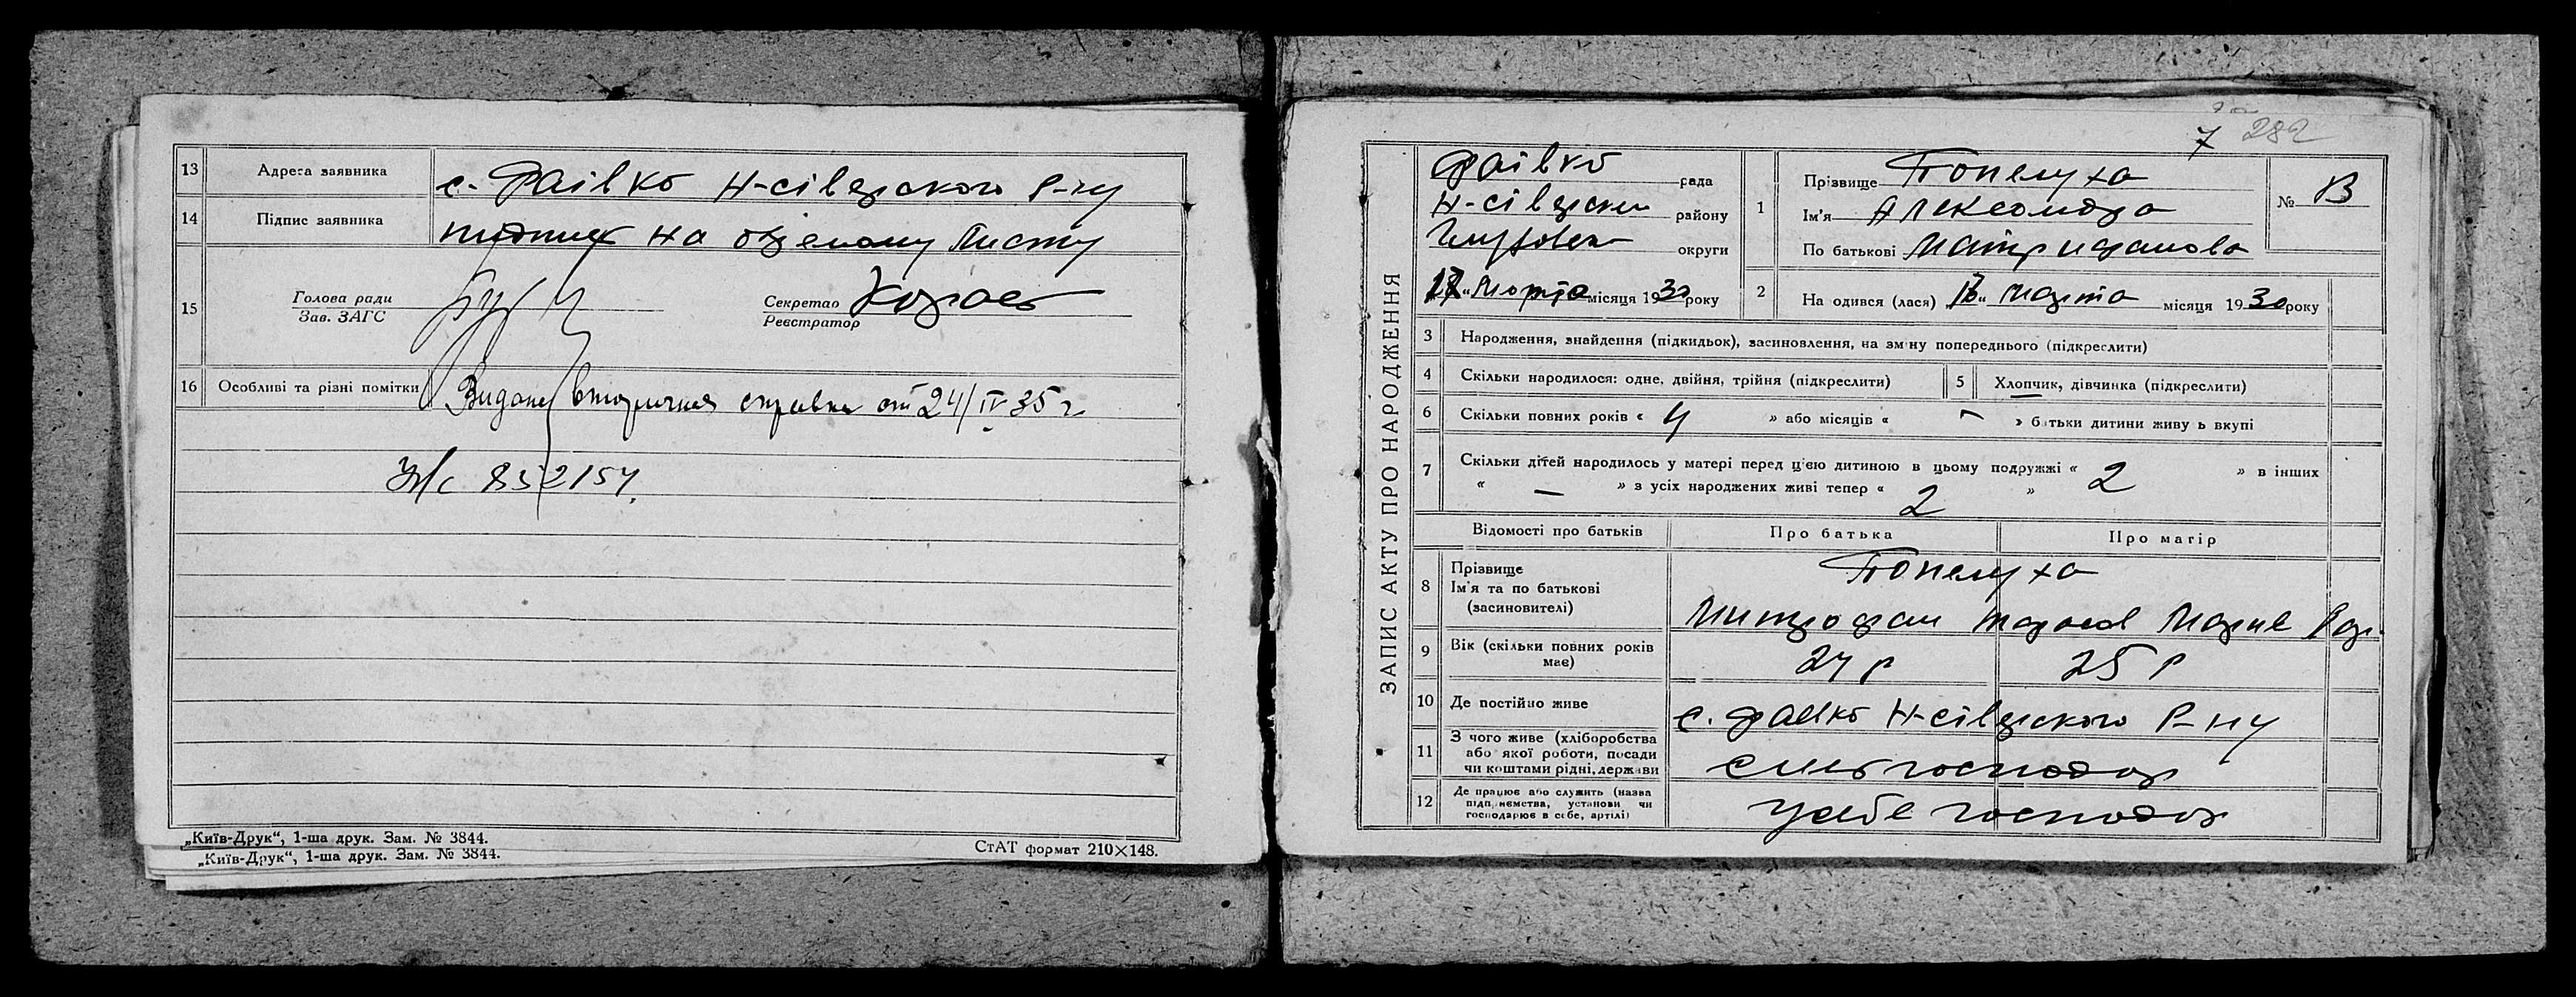 13 Адреса заявника с. Фаівко Н-сіверского Р-ну
14 Підпис заявника підпис на окремому Листу
15 Голова ради
Зав. ЗАГС
Секретар
Реєстратор
16 Особливі та різні помітки Видана вторичная справка от 24/IV 35 г
852154.
„Київ-Друк“, 1-ша друк. Зам. № 3844.
„Київ-Друк“, 1-ша друк. Зам. № 3844.
СтАТ формат 210×148.
7 282
ЗАПИС АКТУ ПРО НАРОДЖЕННЯ
Фаівко рада
Н-сіверский району
Глухівськ округи
„ Марта місяця 1930 року
1 Прізвище Попелуха
Ім'я Александра
По батькові Матрифанова
№ 13
2 На одився (лася) „ 13 “ Марта місяця 1930 року
3 Народження, знайдення (підкидьок), засиновлення, на зміну попереднього (підкреслити)
4 Скільки народилося: одне, двійня, трійня (підкреслити)
5 Хлопчик, дівчинка (підкреслити)
6 Скільки повних років « 4 » або місяців « – » батьки дитини живуть вкупі
7 Скільки дітей народилось у матері перед цією дитиною в цьому подружжі « 2 » в інших
« — » з усіх народжених живі тепер « 2 »
Відомості про батьків Про батька Про матір
8 Прізвище Попелуха
Ім'я та по батькові
(засиновителі) Митрофан Тарасов Мария
9 Вік (скільки повних років має) 24 р 25 р
10 Де постійно живе с. Фаівко Н-сіверского Р-ну
11 З чого живе (хліборобства
або якої роботи, посади
чи коштами рідні, держави господар
12 Де працює або служить (назва
підприємства, установи чи
господарює в себе, артілі) у себе господар